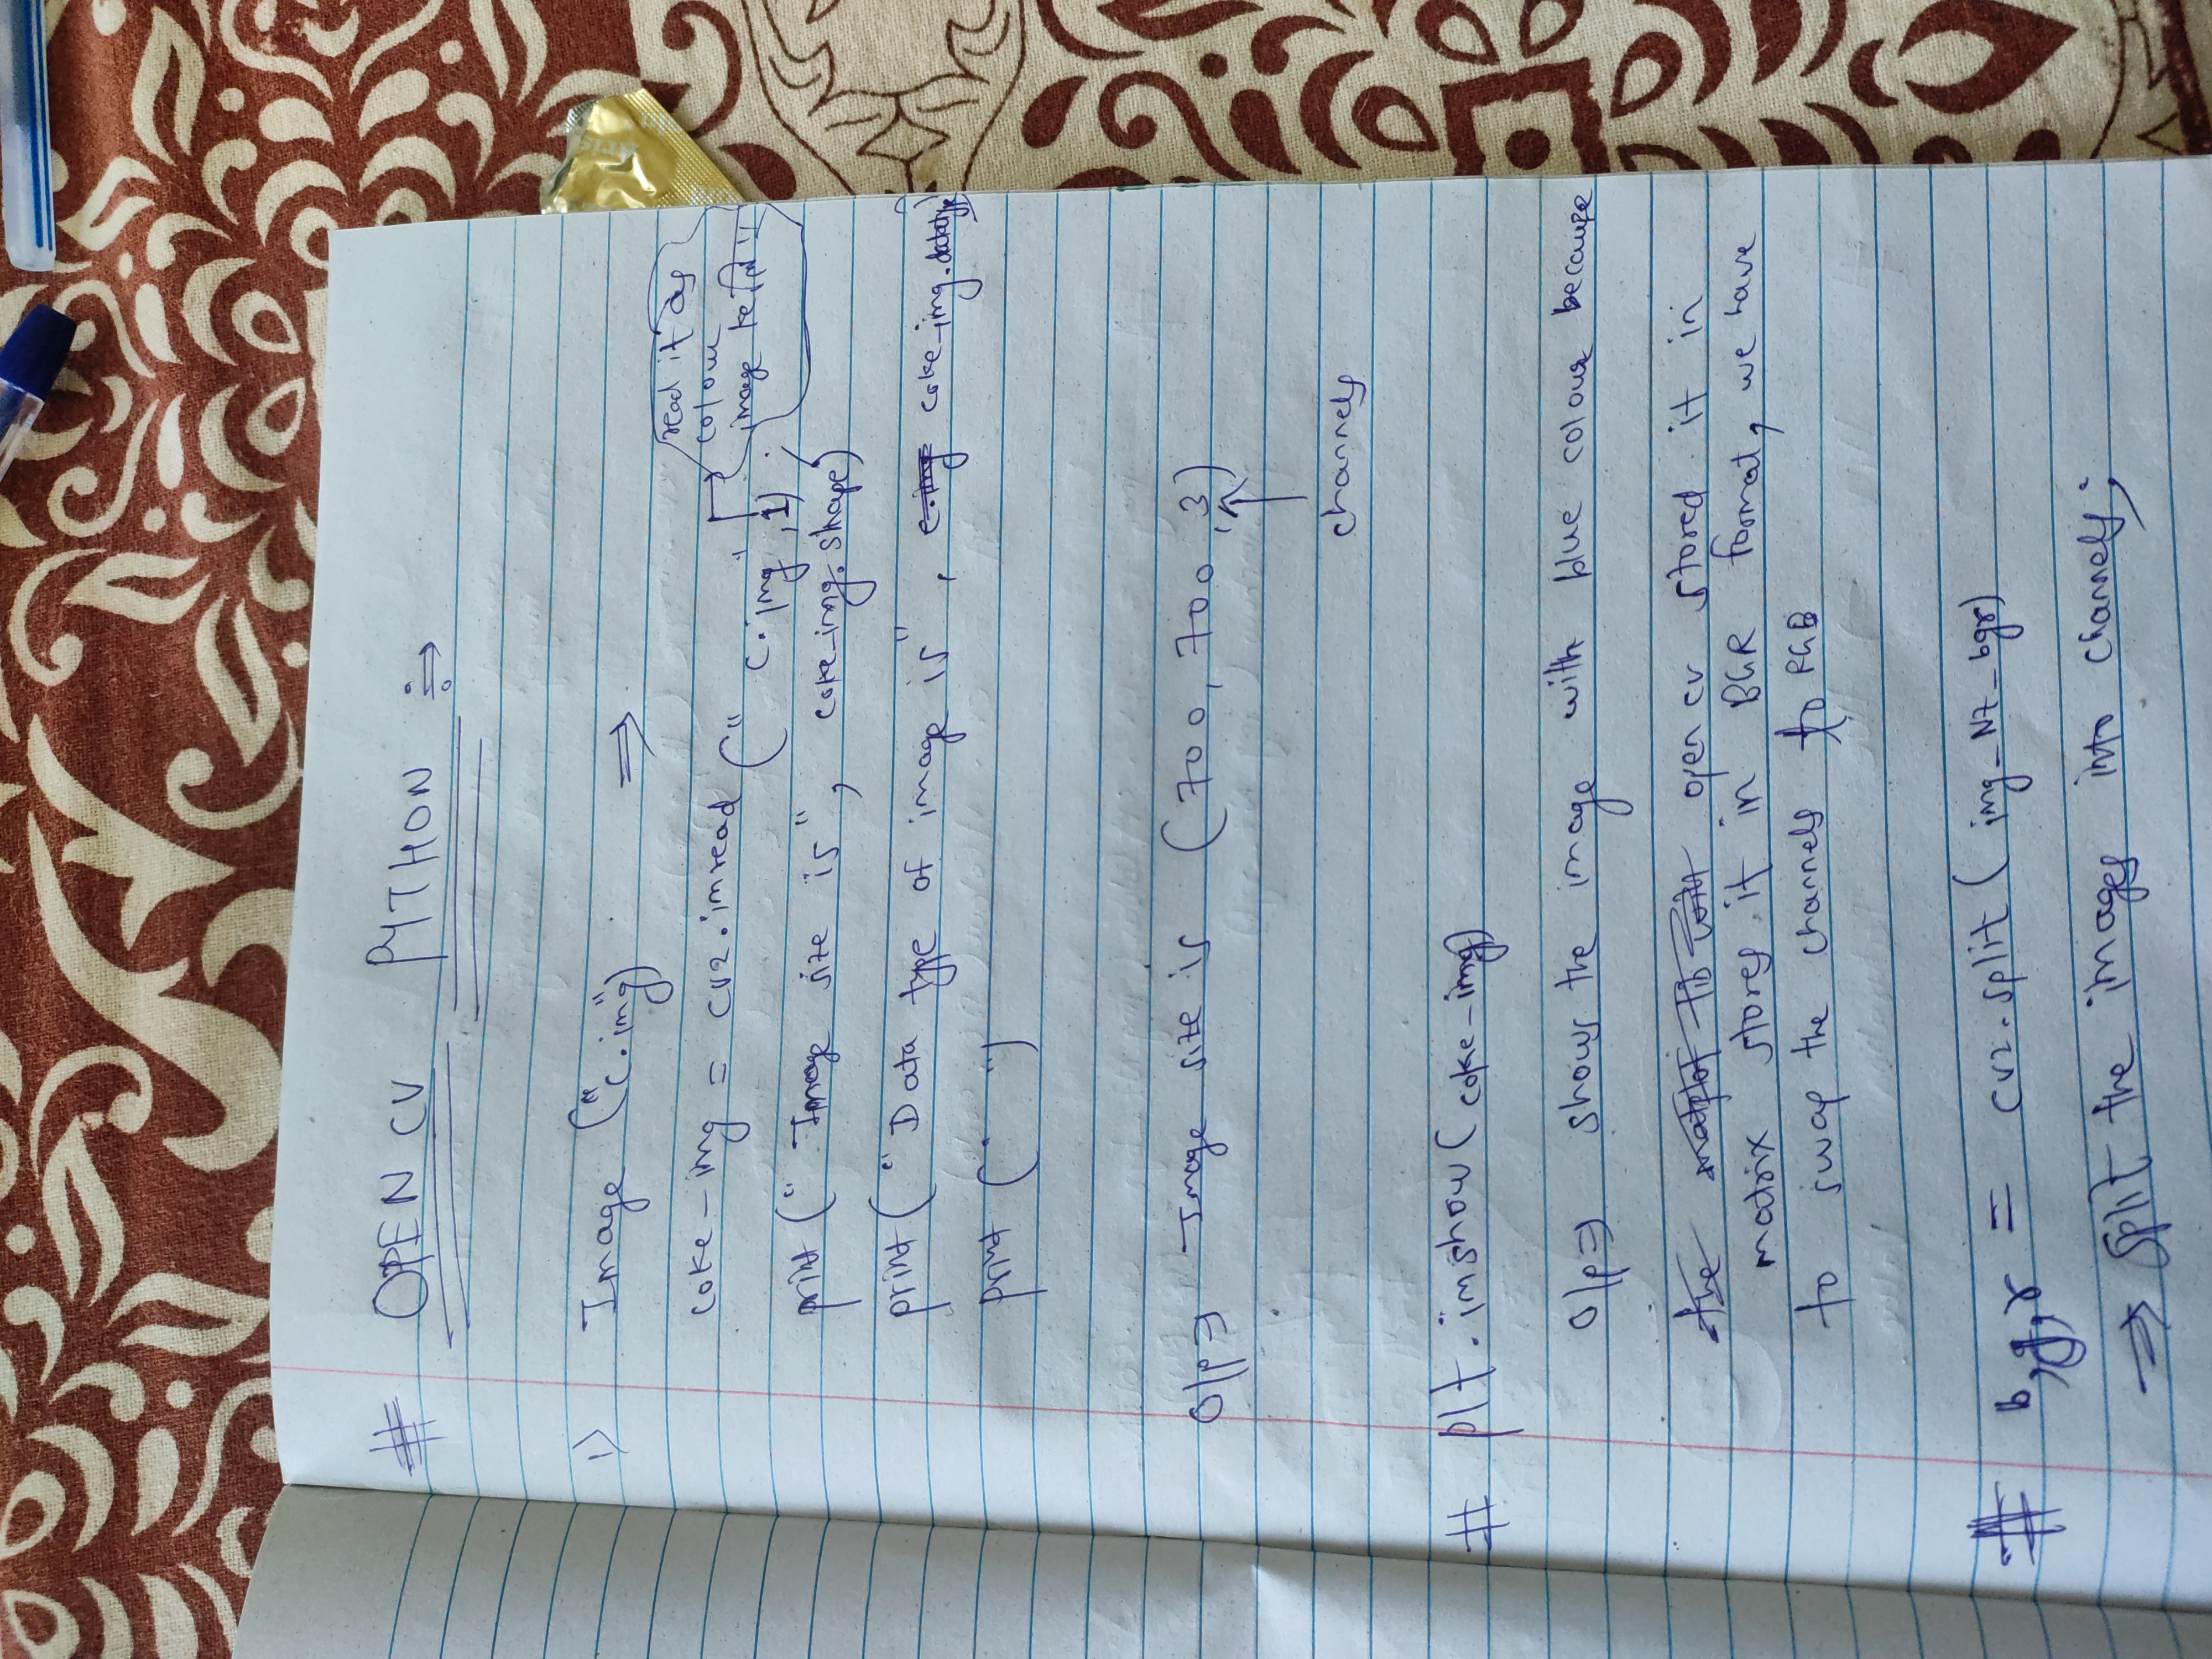 # OPEN CV PYTHON ÷→
1) Image ("c.img") ⇒
read it as
colour
image ke लिए !!
coke-img = cv2.imread ("c.img", 1)
print (" Image size is ", coke-img.shape)
print ("Data type of image is", c.img coke-img.datatype)
print (" ")
O/p ⇒ Image size is (700, 700, 3)
channels
# plt.imshow( coke-img)
O/p ⇒ shows the image with blue colour because
the matplot lib open cv stored it in
matrix stores it in BGR format, we have
to swap the channels to RGB
# b,g,r = cv2.split( img_NZ_bgr)
⇒ split the images into channels;